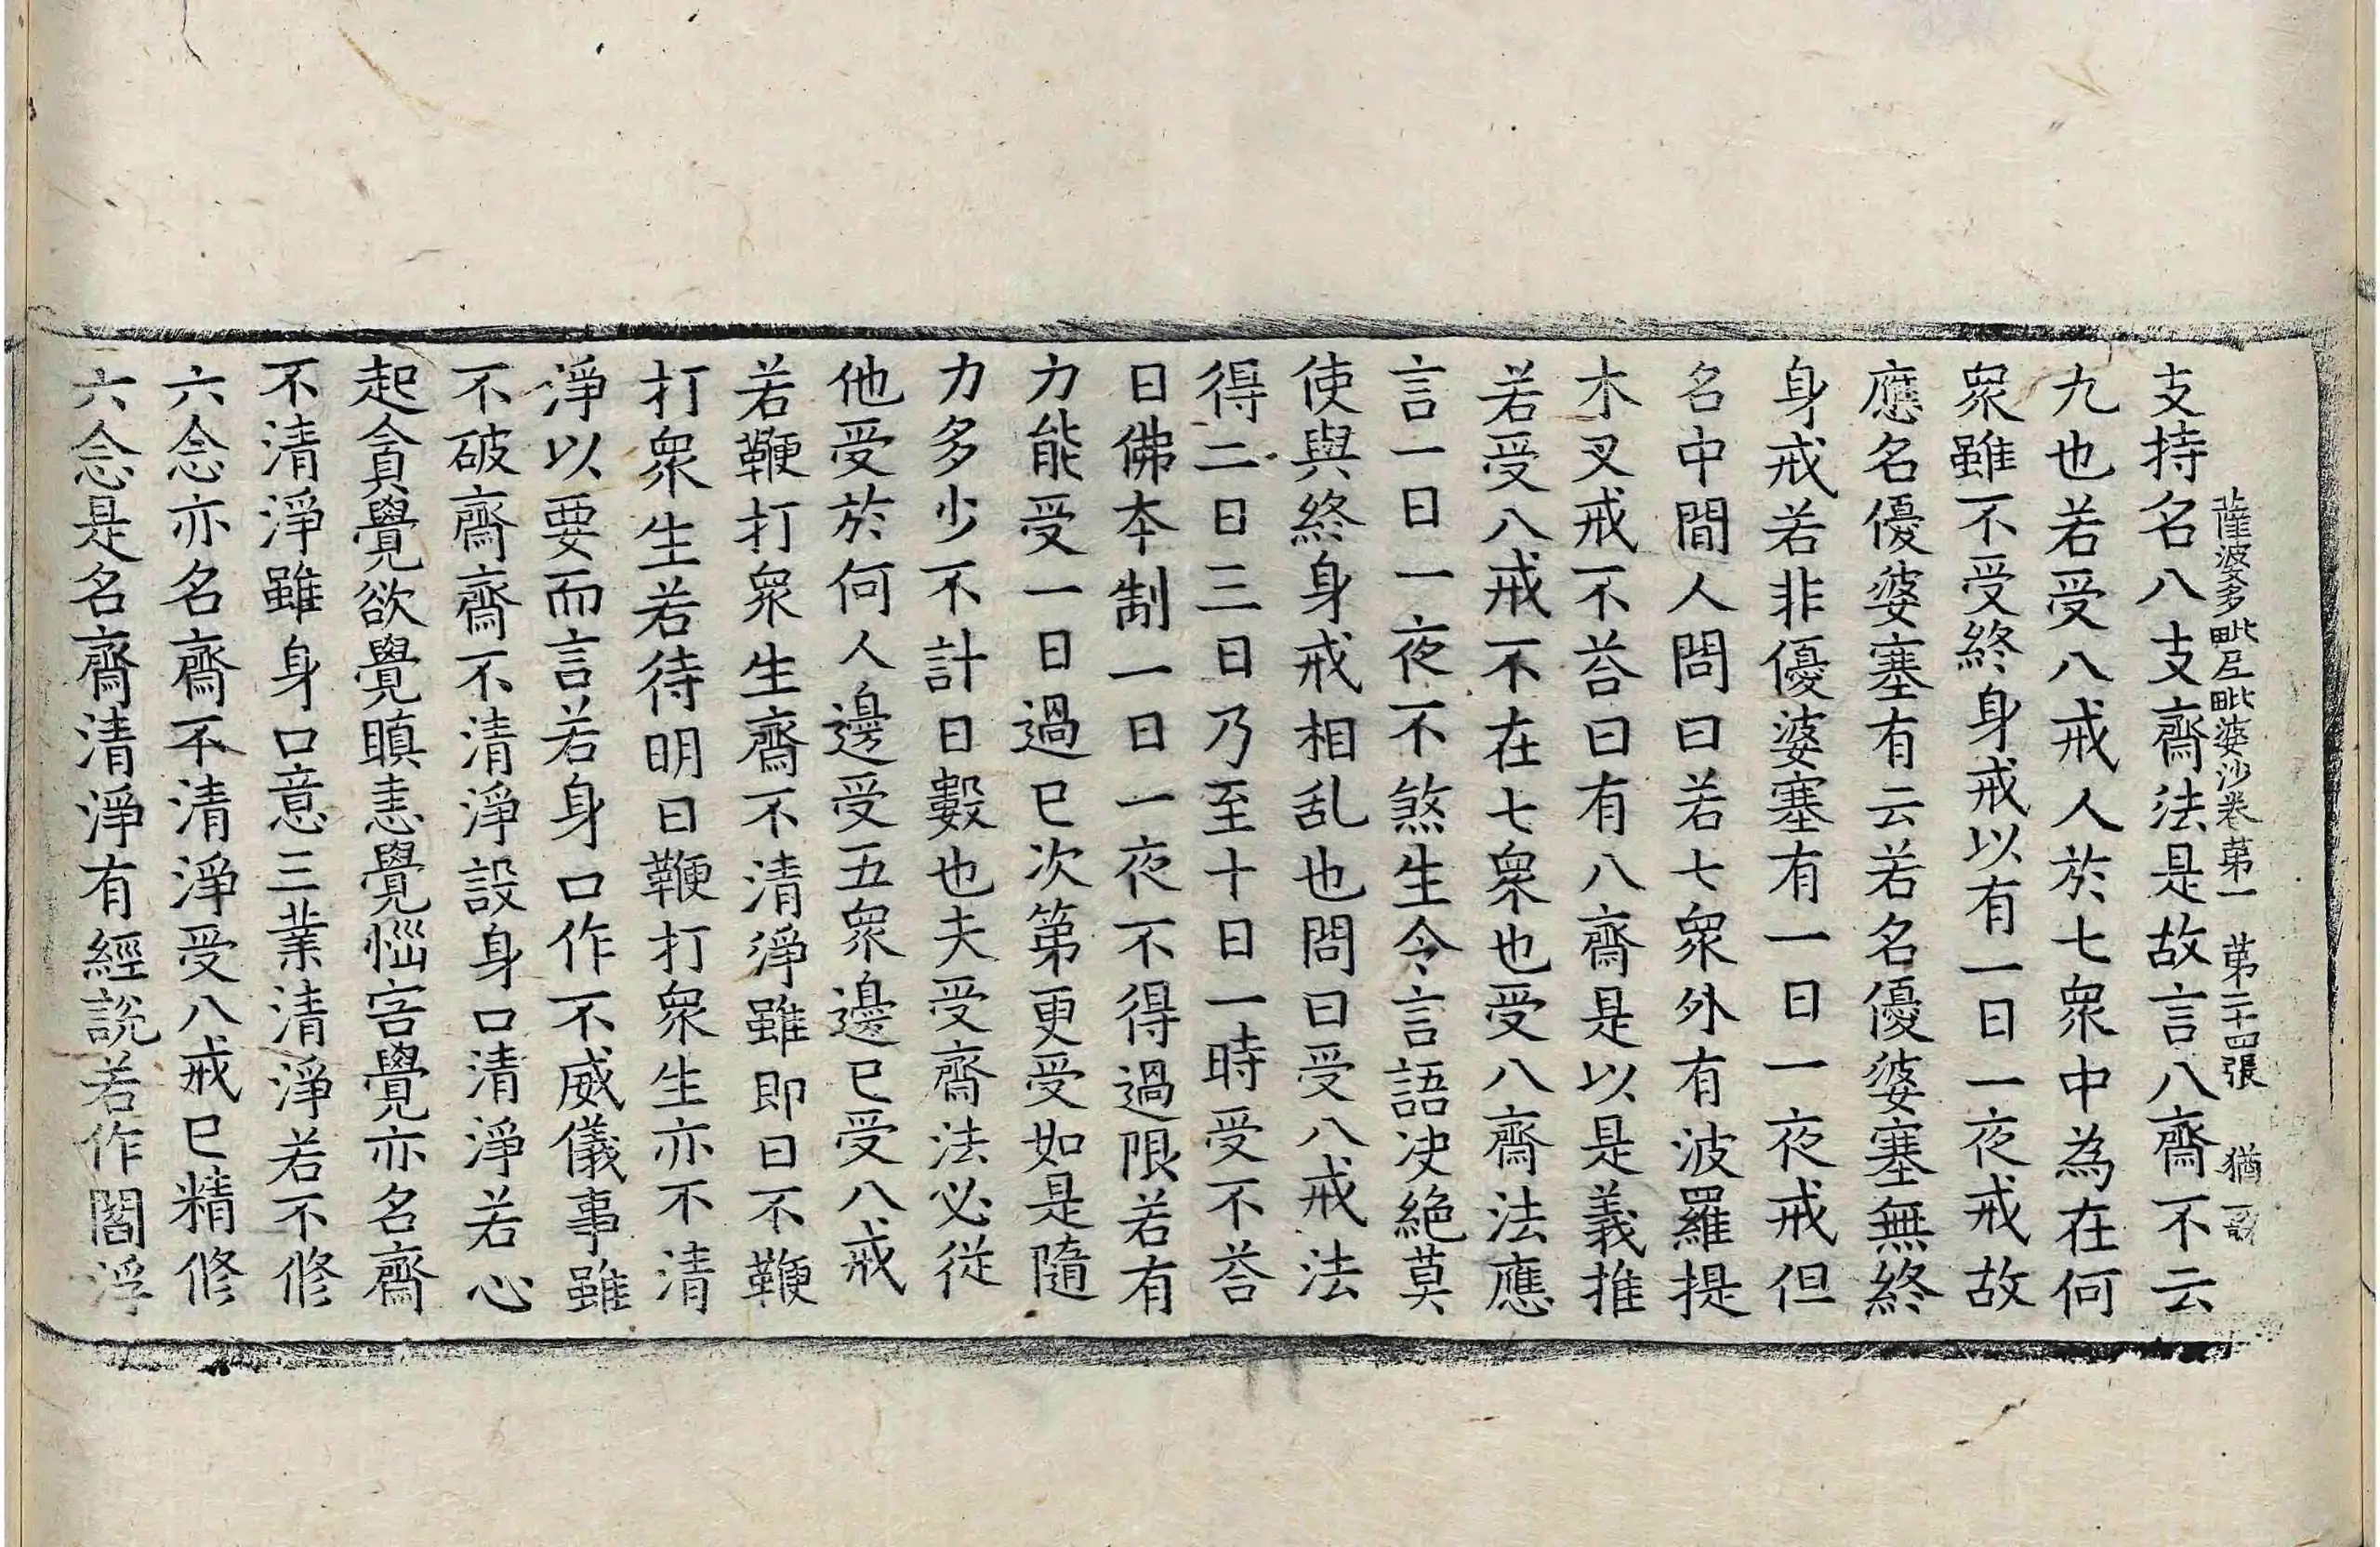 薩婆多毗尼毗婆沙卷第一　第二十四張　猶
支持名八支齋法是故言八齋不云
九也若受八戒人於七衆中為在何
衆雖不受終身戒以有一日一夜戒故
應名優婆塞有云若名優婆塞無終
身戒若非優婆塞有一日一夜戒但
名中間人問曰若七衆外有波羅提
木叉戒不荅曰有八齋是以是義推
若受八戒不在七衆也受八齋法應
言一日一夜不煞生令言語决絶莫
使與終身戒相乱也問曰受八戒法
得二日三日乃至十日一時受不荅
日佛本制一日一夜不得過限若有
力能受一日過已次第更受如是隨
力多少不計日數也夫受齋法必従
他受於何人邊受五衆邊已受八戒
若鞭打衆生齋不清淨雖即日不鞭
打衆生若待明日鞭打衆生亦不清
淨以要而言若身口作不威儀事雖
不破齋齋不清淨設身口清淨若心
起貪覺欲覺瞋恚覺惱害覺亦名齋
不清淨雖身口意三業清淨若不修
六念亦名齋不清淨受八戒已精修
六念是名齋清淨有經説若作閻浮